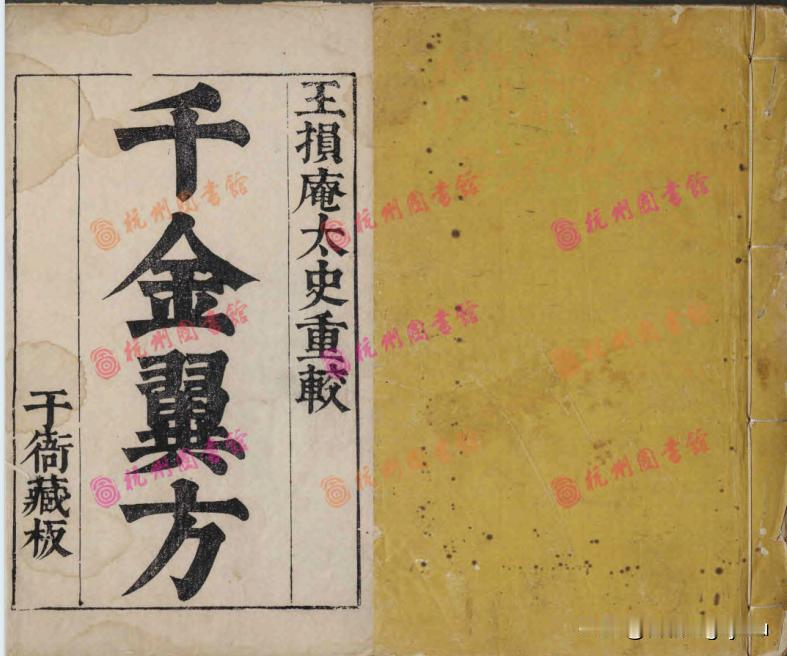 王損庵太史重較
千金翼方
于衙藏板
杭州圖書館
杭州圖書館
杭州圖書館
杭州圖書館
杭州圖書館
杭州圖書館
杭州圖書館
杭州圖書館
杭州圖書館